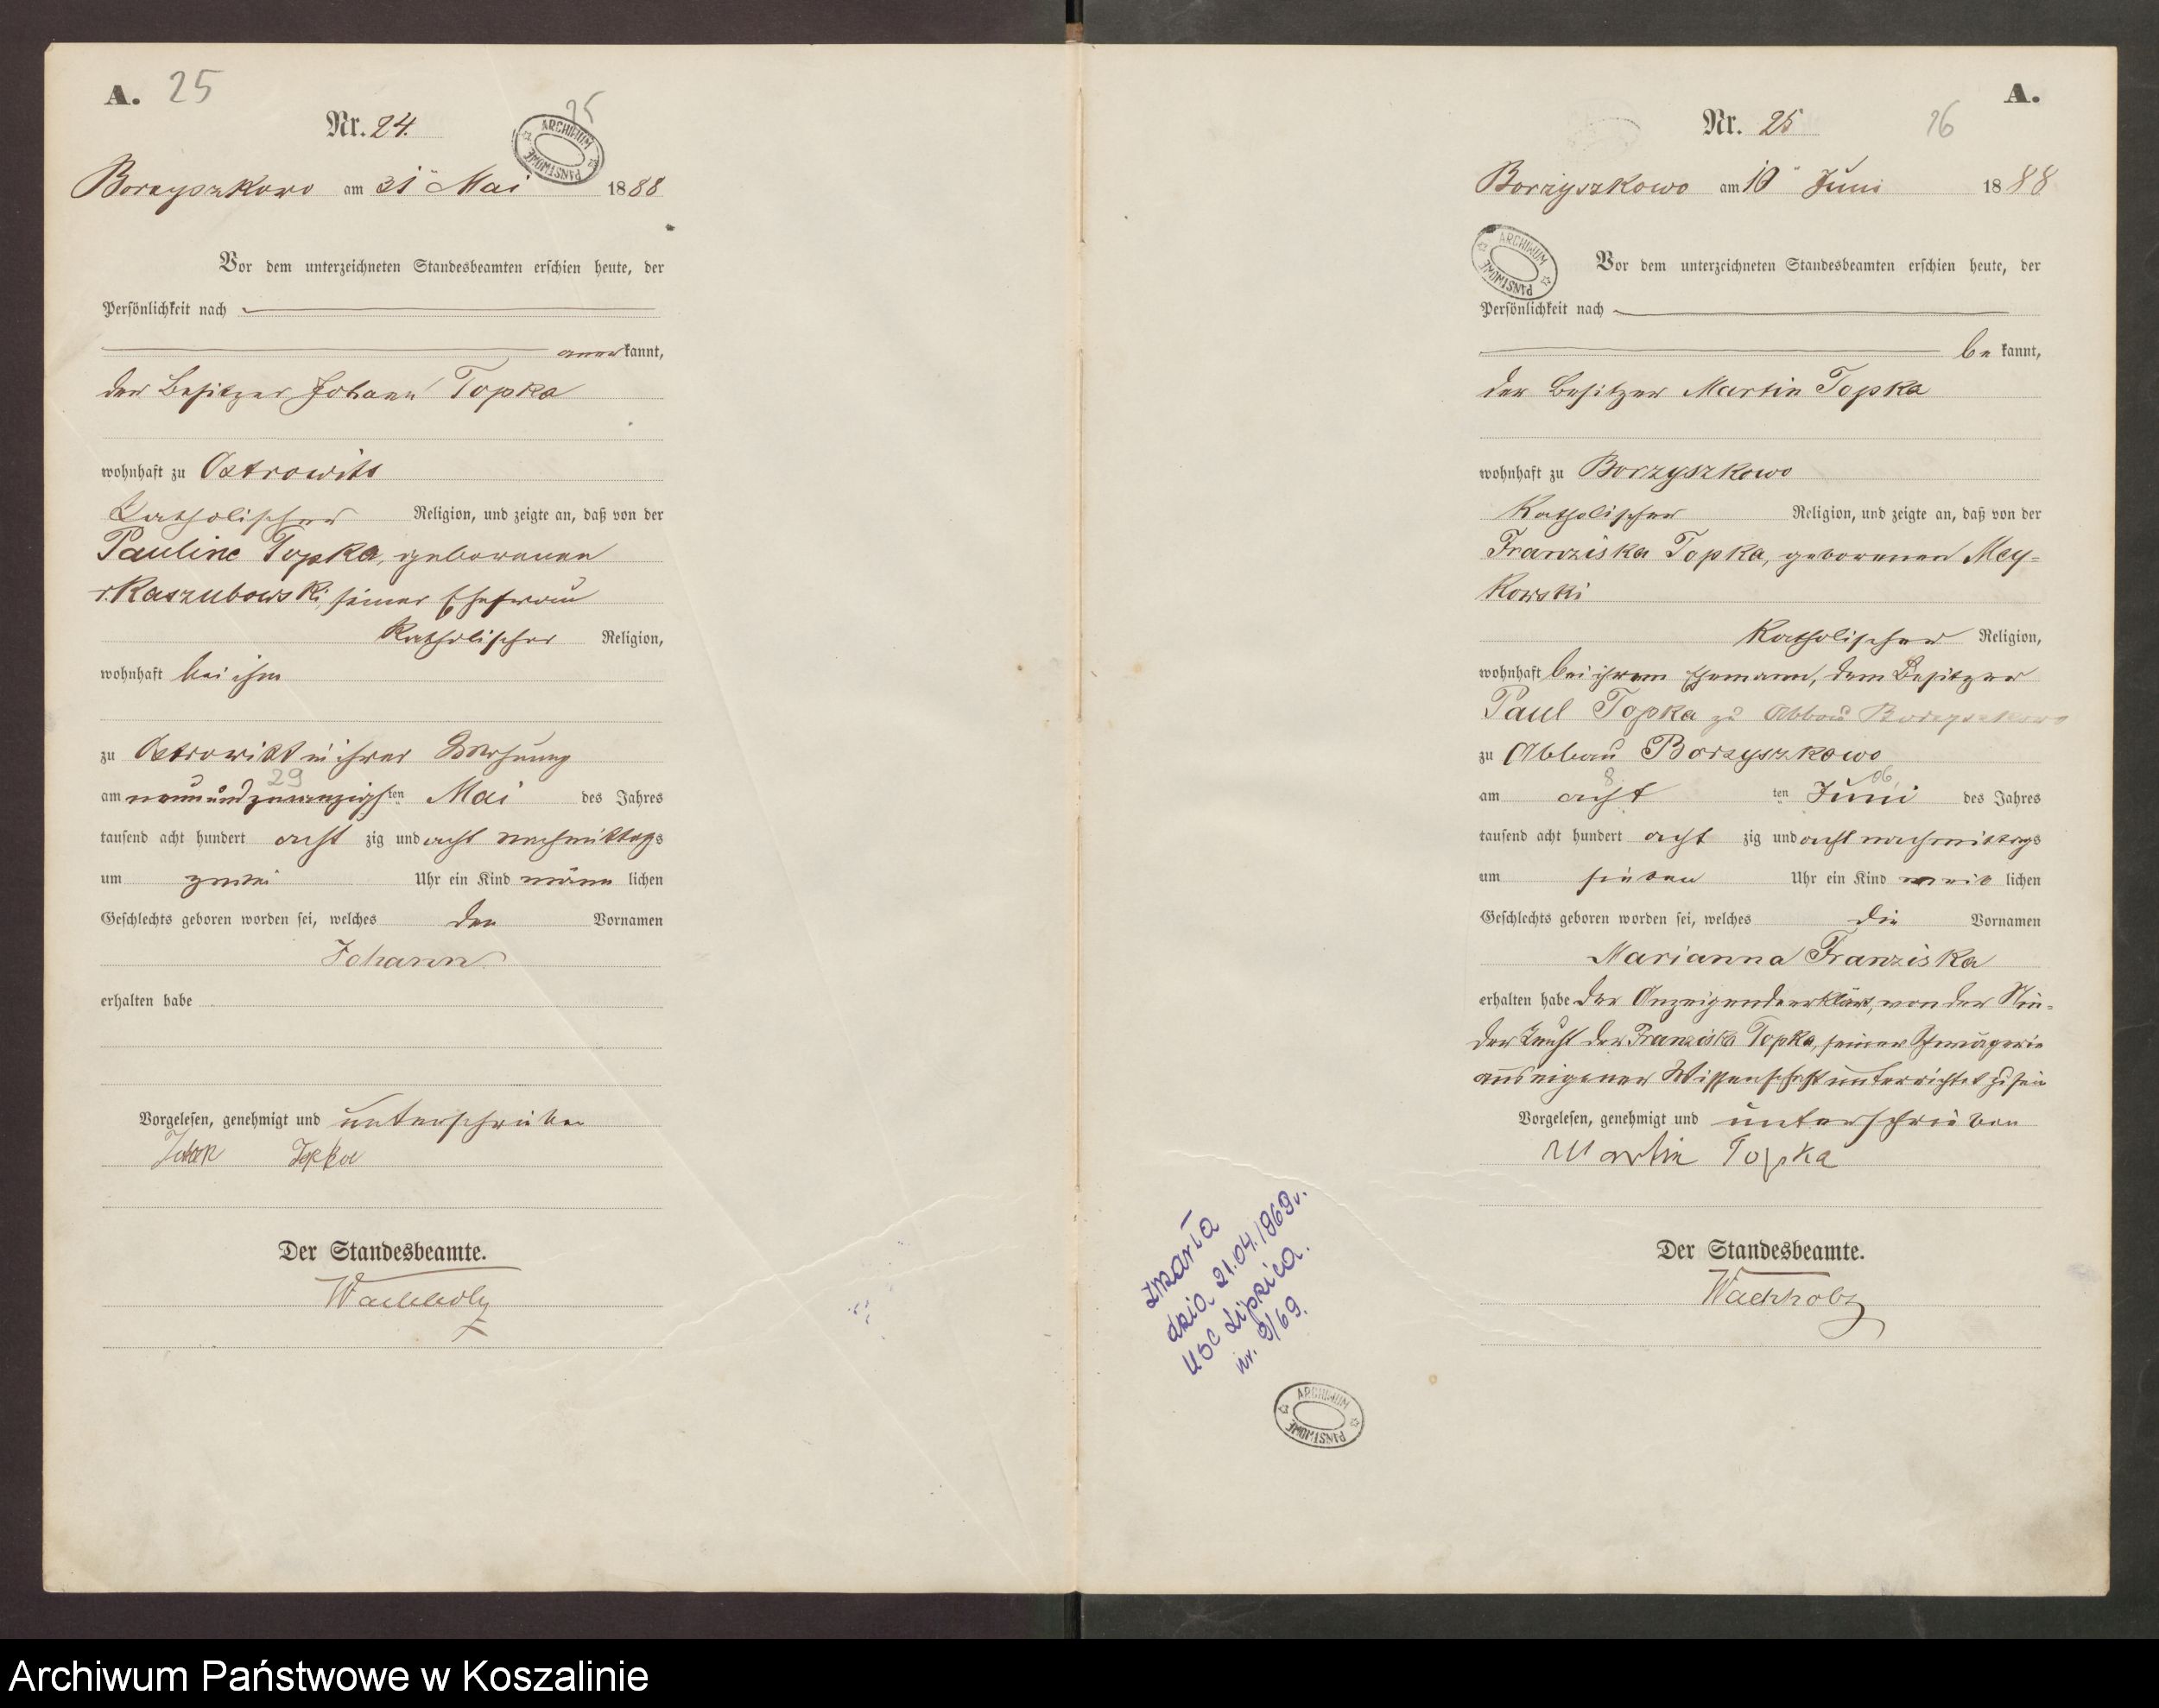 A. 25
Nr. 24.
25
ARCHIWUM PAŃSTWOWE
Borzyszkowo am 31 Mai 1888
Vor dem unterzeichneten Standesbeamten erschien heute, der
Persönlichkeit nach
anerkannt,
der Besitzer Johann Topka
wohnhaft zu Ostrowitt
katholischer Religion, und zeigte an, daß von der
Pauline Topka, geborenen
v. Kaszubowski, seiner Ehefrau
katholischer Religion,
wohnhaft bei ihm
zu Ostrowitt in ihrer Wohnung
29
am neunundzwanzigsten Mai des Jahres
tausend acht hundert achtzig und acht nachmittags
um zwei Uhr ein Kind männlichen
Geschlechts geboren worden sei, welches den Vornamen
Johann
erhalten habe
Vorgelesen, genehmigt und unterschrieben
Topka
Der Standesbeamte.
Wachholz
A.
Nr. 25
26
Borzyszkowo am 10 Juni 1888
ARCHIWUM PAŃSTWOWE
Vor dem unterzeichneten Standesbeamten erschien heute, der
Persönlichkeit nach
bekannt,
der Besitzer Martin Topka
wohnhaft zu Borzyszkowo
katholischer Religion, und zeigte an, daß von der
Franziska Topka, geborenen Mey-
kowski
katholischer Religion,
wohnhaft bei ihrem Ehemann, dem Besitzer
Paul Topka zu Abbau Borzyszkowo
zu Abbau Borzyszkowo
8 06
am acht ten Juni des Jahres
tausend acht hundert achtzig und acht nachmittags
um sieben Uhr ein Kind weiblichen
Geschlechts geboren worden sei, welches die Vornamen
Marianna Franziska
erhalten habe der Anzeigende erklärt, von der Nie-
derkunft der Franziska Topka, seiner Schwägerin
aus eigener Wissenschaft unterrichtet zu sein
Vorgelesen, genehmigt und unterschrieben
Martin Topka
Der Standesbeamte.
Wachholz
zmarła
dnia 21.04.1969r.
USC Lipnica.
nr. 9/69.
ARCHIWUM PAŃSTWOWE
Archiwum Państwowe w Koszalinie